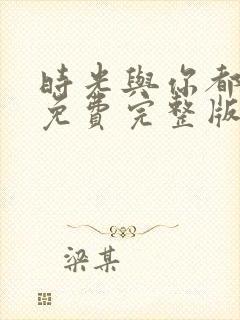 時光與你都
免費完整版
梁某